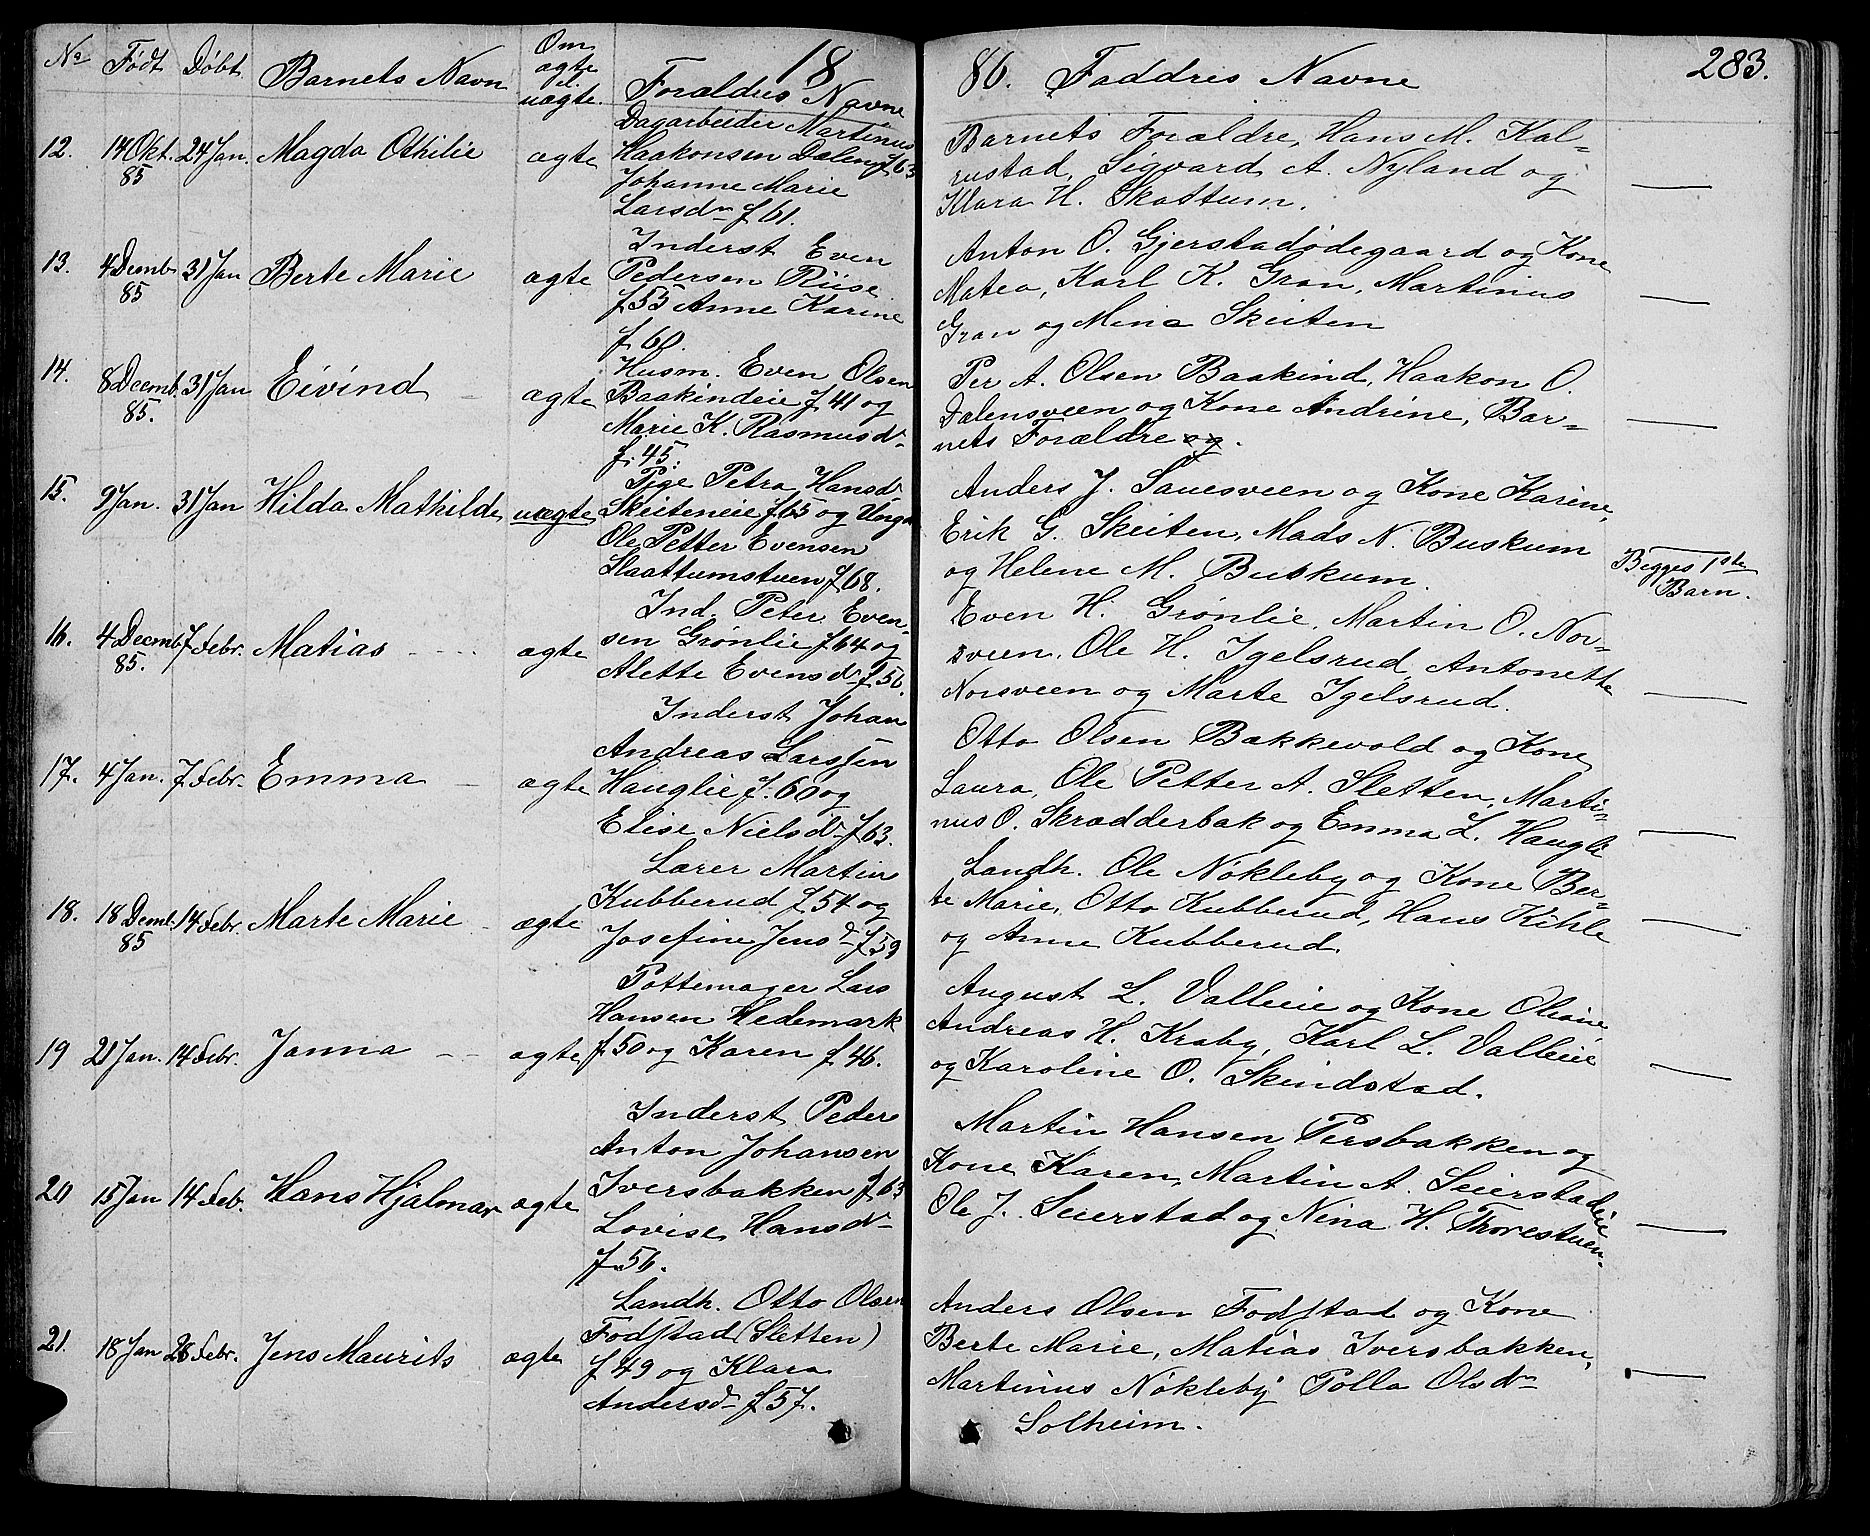 No Født Døbt Barnets Navn Om ægte el. uægte. Forældres Navne 18
86. Faddres Navne 283.
12. 14 Okt. 85 24 Jan. Magda Othilie ægte
Dagarbeider Martinus
Haakonsen Dæleng f 63
Johanne Marie
Larsdn f 61.
Barnets Forældre, Hans M. Kal-
rustad, Sigvard A. Nyland og
Klara H. Skattum.
13. 4 Decmb 85 31 Jan Berte Marie ægte
Inderst Even
Pedersen Riise
f 55 Anne Karine
f 60.
Anton O. Gjerstadødegaard og Kone
Matea, Karl K. Gran, Martinius
Gran og Mina Skeiten
14. 8 Decemb. 85. 31 Jan Eivind ægte
Husm. Even Olsen
Baakindeie f 41 og
Marie K. Rasmusd
f. 45.
Per A. Olsen Baakind, Haakon O.
Dalensveen og Kone Andrine, Bar=
nets Forældre og.
15. 9 Jan. 31 Jan Hilda Mathilde uægte
Pige Petra Hansd
Skeiteneie f 65 og Ungk
Ole Petter Evensen
Slaattumstuen f 68.
Anders J. Sauesveen og Kone Karine,
Erik G. Skeiten, Mads N. Buskum
og Helene M. Buskum.
Begges 1ste
Barn.
16. 4 Decemb 85. 7 Febr. Matias ægte
Ind. Peter Even-
sen Grønlie f 64 og
Alette Evensd f 56.
Even H. Grønlie, Martin O. Nor=
sveen, Ole H. Igelsrud, Antonette
Norsveen og Marte Igelsrud.
17. 4 Jan. 7 Febr. Emma ægte
Inderst Johan
Andreas Larssen
Hauglie f. 60 og
Elise Nielsd f 63.
Otto Olsen Bakkevold og Kone
Laura, Ole Petter A. Sletten, Marti=
nus O. Skrædderbak og Emma L. Haugli
18. 18 Decmb. 85 14 Febr. Marte Marie ægte
Lærer Martin
Kubberud f 54 og
Josefine Jensd f 59
Landh. Ole Nøkleby og Kone Ber=
te Marie, Otto Kubberud, Hans Kihle
og Anne Kubberud.
19 21 Jan. 14 Febr. Janna ægte
Pottemager Lars
Hansen Hedemark
f 50 og Karen f 46.
August L. Valleie og Kone Oleane,
Andreas H. Kraby, Karl L. Valleie
og Karoline O. Skindstad.
20 15 Jan 14 Feb. Hans Hjalmar ægte
Inderst Peder
Anton Johansen
Iversbakken f 63
Lovise Hansd
f. 56.
Martin Hansen Persbakken og
Kone Karen, Martin A. Seierstadeie
Ole J. Seierstad og Nina H. Thorestuen.
21. 18 Jan 28 Febr. Jens Maurits ægte
Landh. Otto Olsen
Fodstad (Sletten)
f 49 og Klara
Andersd f 57.
Anders Olsen Fodstad og Kone
Berte Marie, Matias Iversbakken,
Martinius Nøkleby Polla Olsdn
Solheim.